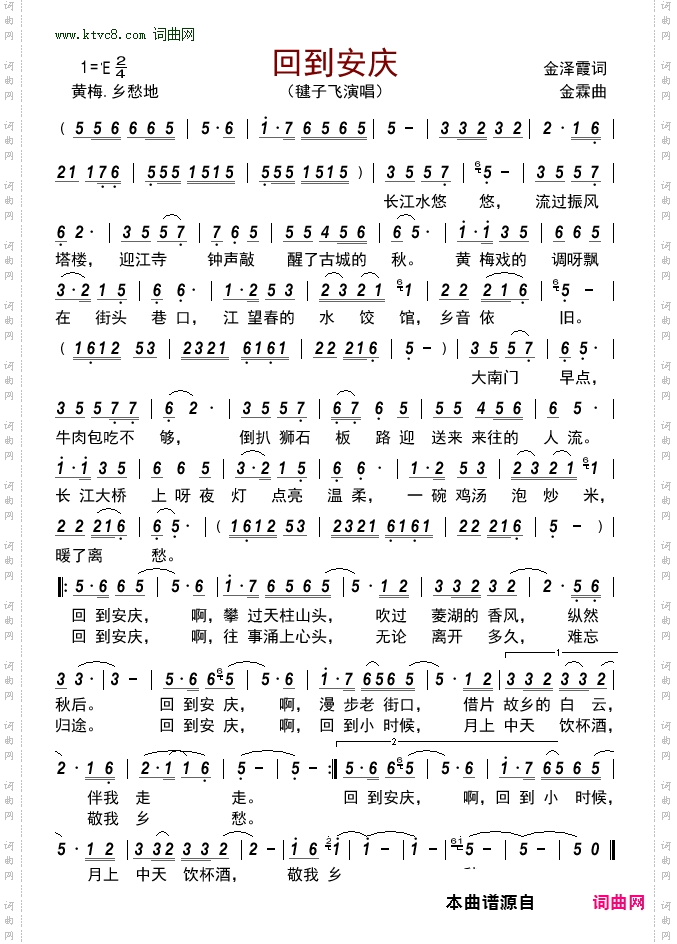 www.ktvc8.com 词曲网
回到安庆
1=♭E 2/4
金泽霞词
黄梅.乡愁地
（毽子飞演唱）
金霖曲
( 5 5 6 6 6 5 | 5·6 | i·7 6 5 6 5 | 5 - | 3 3 2 3 2 | 2·1 6 |
2 1 1 7 6 | 5 5 5 1 5 1 5 | 5 5 5 1 5 1 5 ) | 3 5 5 7 | 6 5 - | 3 5 5 7 |
长江水悠 悠， 流过振风
6 2 · | 3 5 5 7 | 7 6 5 | 5 5 4 5 6 | 6 5 · | i·i 3 5 | 6 6 5 |
塔楼， 迎江寺 钟声敲 醒了古城的 秋。 黄 梅戏的 调呀飘
3·2 1 5 | 6 6 · | 1·2 5 3 | 2 3 2 1 6 1 | 2 2 2 1 6 | 5 - |
在 街头 巷 口， 江 望春的 水 饺 馆， 乡音依 旧。
( 1 6 1 2 5 3 | 2 3 2 1 6 1 6 1 | 2 2 2 1 6 | 5 - ) | 3 5 5 7 | 6 5 · |
大南门 早点，
3 5 5 7 7 | 6 2 · | 3 5 5 7 | 6 7 6 5 | 5 5 4 5 6 | 6 5 · |
牛肉包吃不 够， 倒扒 狮石 板 路 迎 送来 来往的 人 流。
i·i 3 5 | 6 6 5 | 3·2 1 5 | 6 6 · | 1·2 5 3 | 2 3 2 1 6 1 |
长 江大桥 上 呀 夜 灯 点亮 温 柔， 一 碗 鸡汤 泡 炒 米，
2 2 2 1 6 | 6 5 · | ( 1 6 1 2 5 3 | 2 3 2 1 6 1 6 1 | 2 2 2 1 6 | 5 - ) |
暖了离 愁。
5·6 6 5 | 5·6 | i·7 6 5 6 5 | 5·1 2 | 3 3 2 3 2 | 2·5 6 |
回 到安庆， 啊，攀 过天柱山头， 吹过 菱湖的 香风， 纵然
回 到安庆， 啊，往 事涌上心头， 无论 离开 多久， 难忘
3 3 · | 3 - | 5·6 6 5 | 5·6 | i·7 6 5 6 5 | 5·1 2 | 3 3 2 3 3 2 |
秋后。 回 到安 庆， 啊， 漫 步老 街口， 借片 故乡的 白 云，
归途。 回 到安 庆， 啊， 回 到小 时候， 月上 中天 饮杯酒，
2·1 6 | 2·1 1 6 | 5 - | 5 - :| 5·6 6 5 | 5·6 | i·7 6 5 6 5 |
伴我 走 走。 回 到安庆， 啊，回 到 小 时候，
敬我 乡 愁。
5·1 2 | 3 3 2 3 3 2 | 2 - | 1 6 i | i - | i - | 5 - | 5 - | 5 0 ‖
月上 中天 饮杯酒， 敬我 乡
本曲谱源自 词曲网